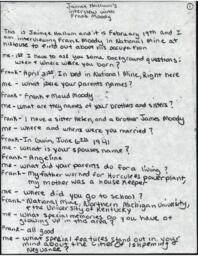 Jaimee Hallum's
interview with
Frank Moody
This is Jaimee Hallum and it is February 19th and I
am interviewing Frank Moody, in National Mine at
his house to find out about his occupation
me - 1st I have to ask you some background questions;
when & where were you born?
Frank - April 21st. In bed in National Mine, Right here
me - What were your parents names?
Frank - Frank & Maud Moody
me - What are they names of your brothers and sisters?
Frank - I have a sister Helen, and a brother James Moody
me - where and when were you married?
Frank - In Gwinn, June 6th 1941
me - what is your spouses name?
Frank - Angeline
me - what did your parents do for a living?
Frank - My father worked for Hercules powerplant,
my mother was a House Keeper
me - where did you go to school?
Frank - National Mine, Northern Michigan University,
& the University of Kentucky
me - What special memories do you have of
growing up in the area?
Frank - all good
me - What special features stand out in your
mind about the time of Ishpeming &
Negaunee?